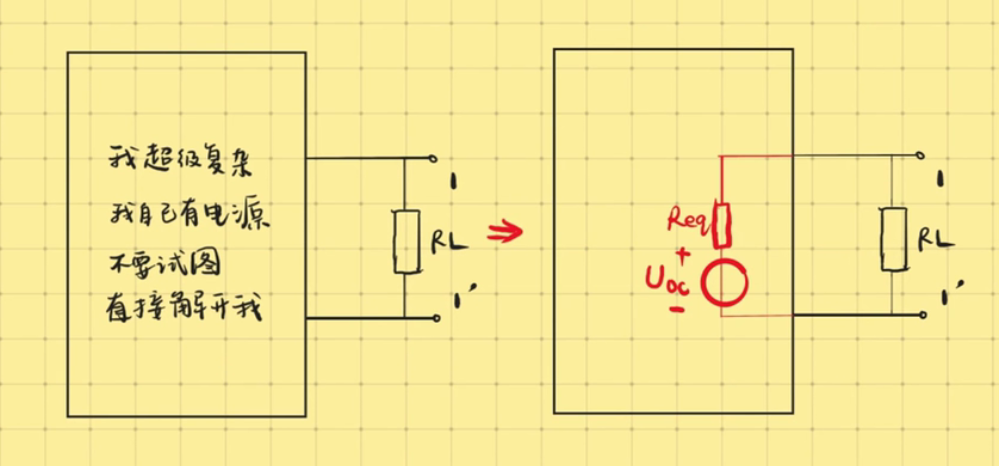 我超级复杂
我自己有电源
不要试图
直接解开我
1
RL
1'
Req
+
Uoc
-
1
RL
1'